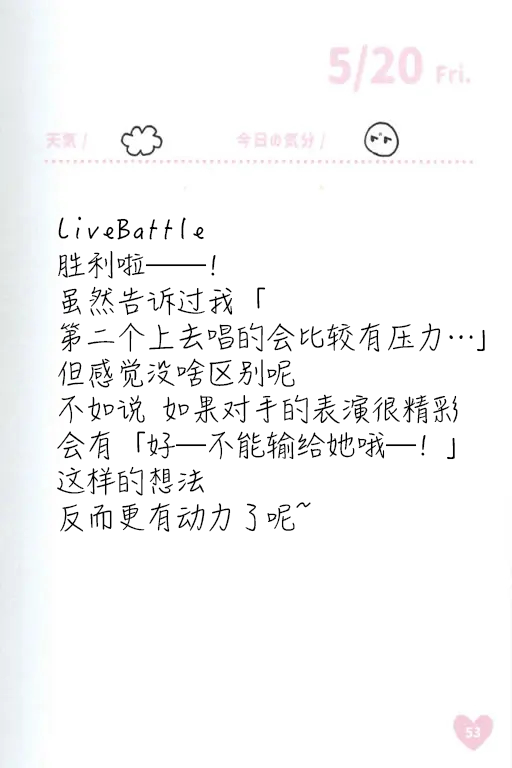 5/20 Fri.
天気 / 今日の気分 /
LiveBattle
胜利啦——！
虽然告诉过我「
第二个上去唱的会比较有压力…」
但感觉没啥区别呢
不如说 如果对手的表演很精彩
会有「好—不能输给她哦—！」
这样的想法
反而更有动力了呢~
53